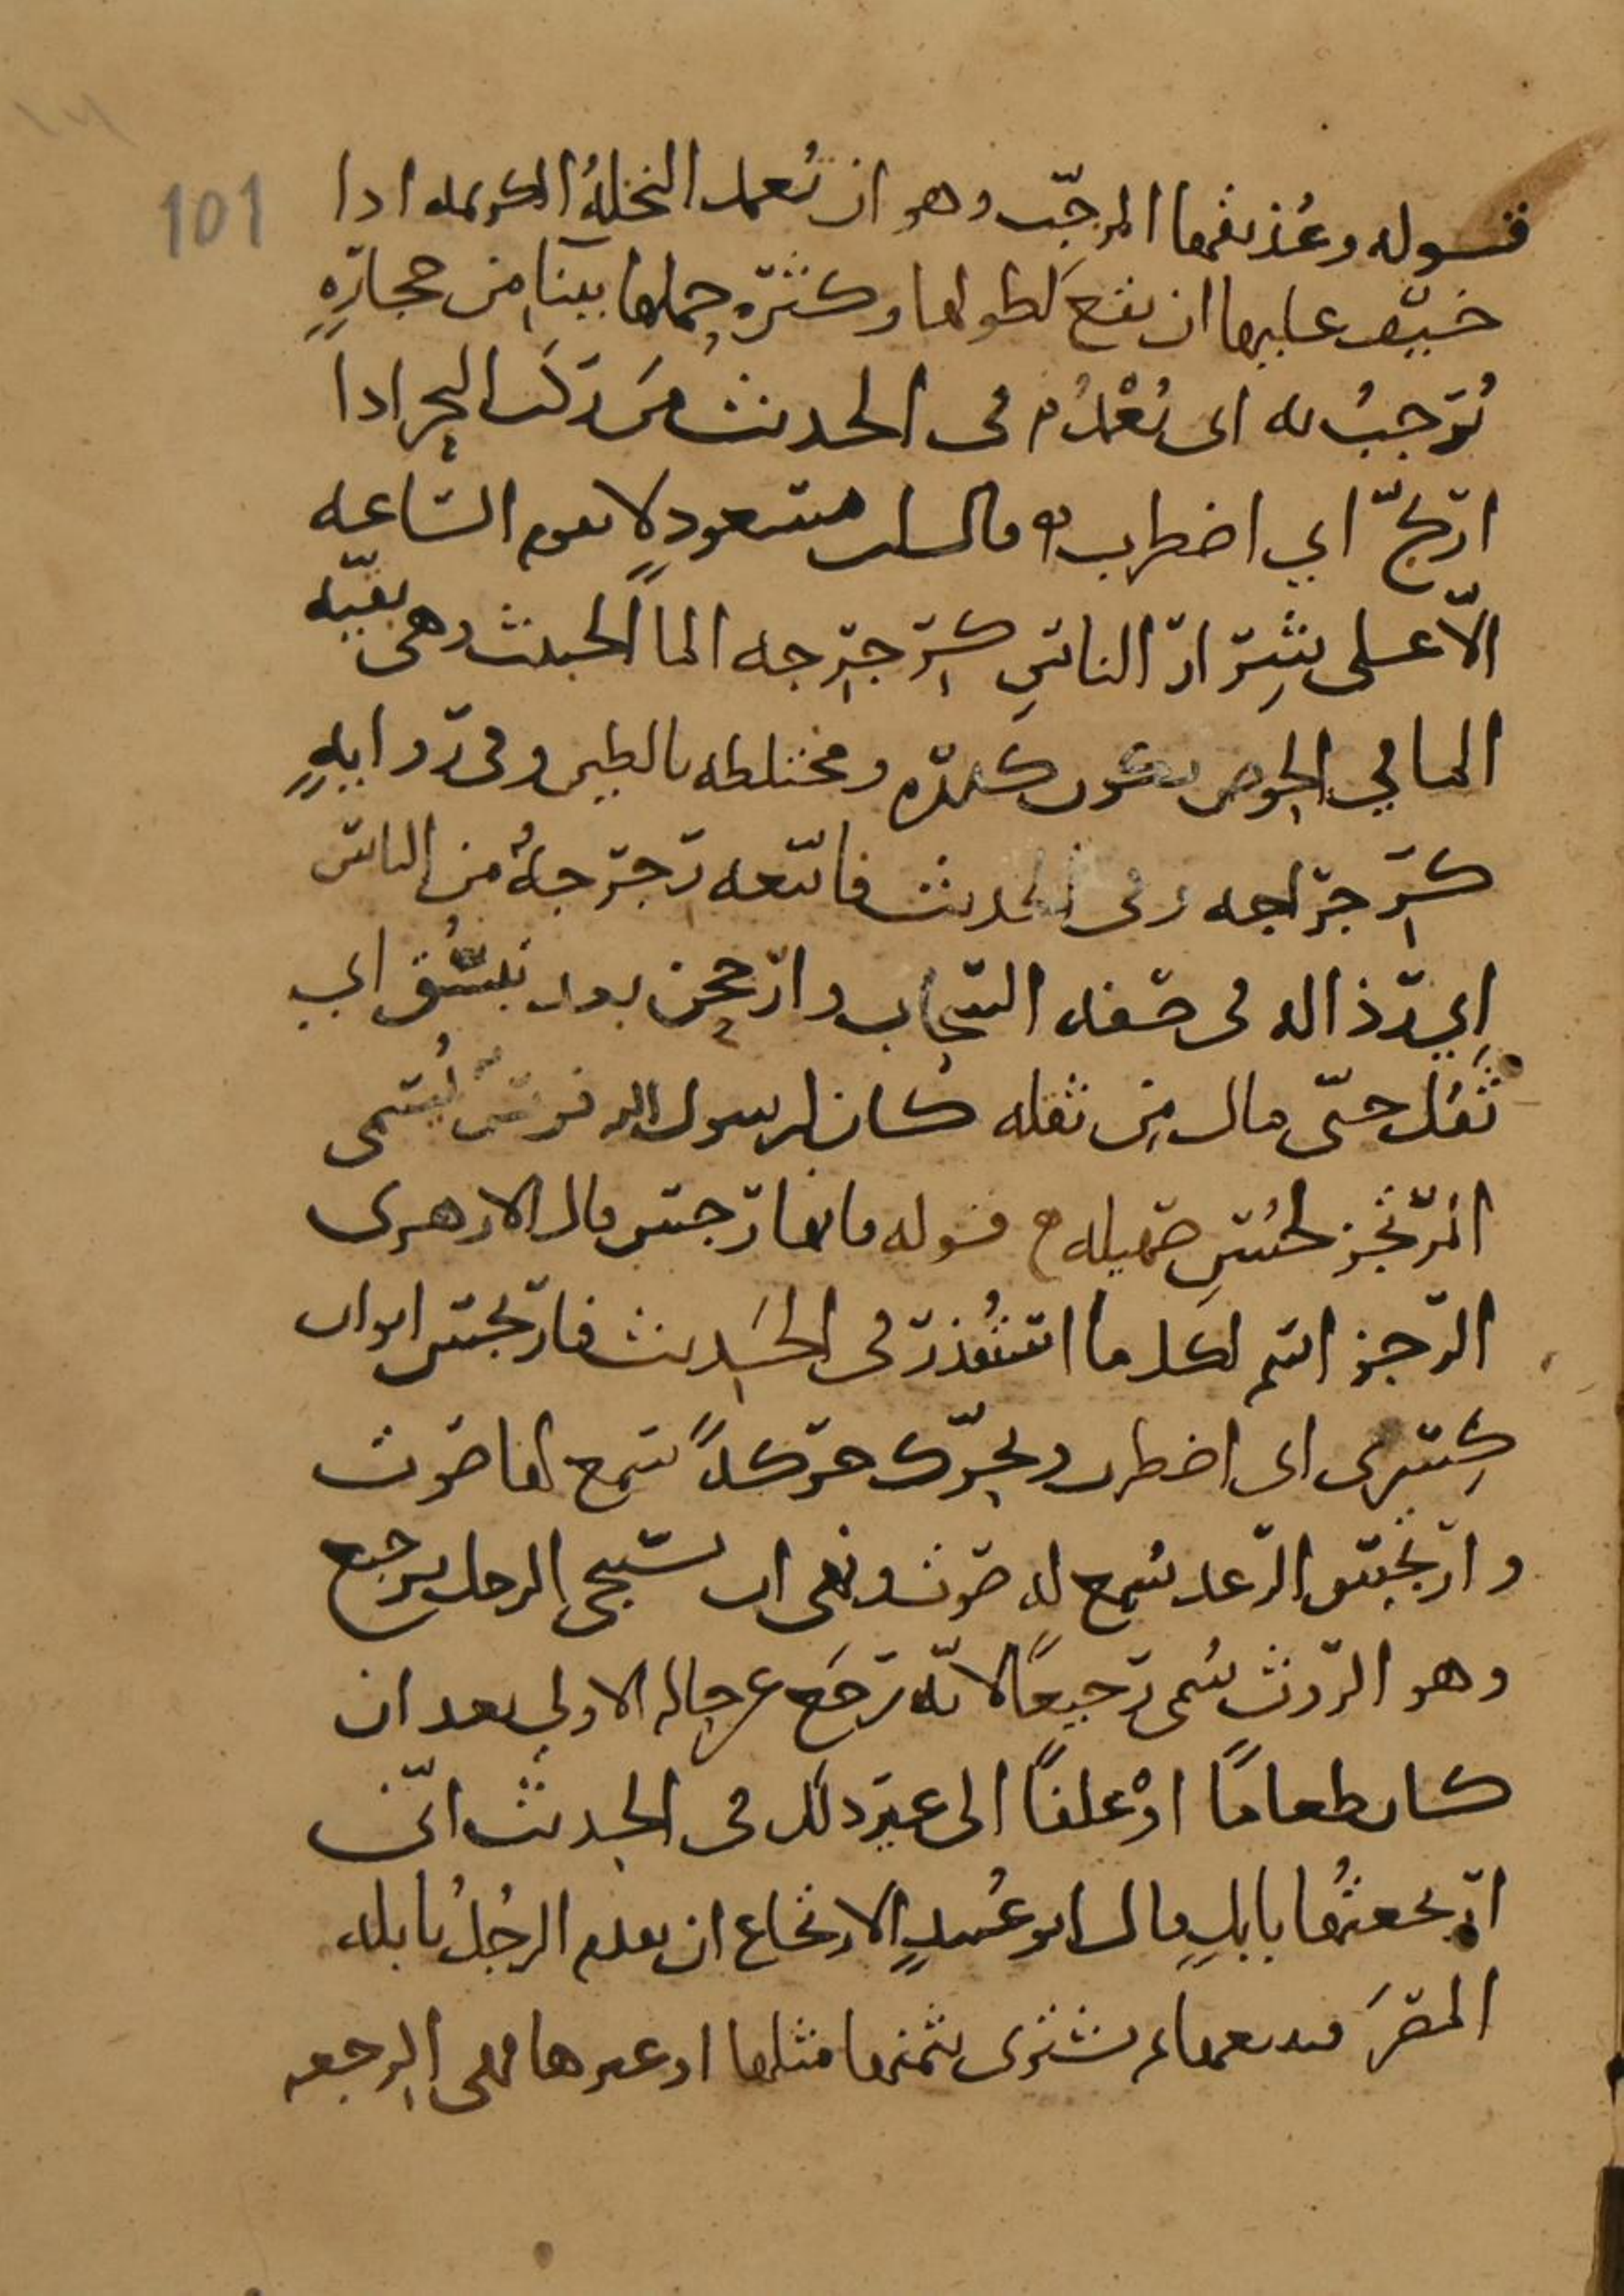 101
قوله وعُذيقها المرجّب وهو ان تُعمد النخلةُ الكريمه اذا
خيف عليها ان تقع لطولها وكثرة حملها ببناءٍ من حجارةٍ
تُرجبُ به اى تُعْمدُ م فى الحديث من ركب البحر اذا
ارتجّ اي اضطرب م قال ابن مسعود لا تقوم الساعه
الّا على شِرار الناسِ كرِجرِجه الماء الخبيث وهى بقيّه
الماء في الحوض تكون كدره ومختلطه بالطين وفى روايهٍ
كرِجراجه وفى الحديث فاتبعه رِجرِجةٌ من الناس
اي رذاله فى صفه السحاب وارجحن بعد تبسُّق اي
ثقل حتّى مال من ثقله كان لرسول الله فرس يُسمى
المرتجز لحُسنِ صهيله م قوله فانها رجس قال الازهرى
الرجز اسم لكل ما استُقذر فى الحديث فارتجس ايوان
كِسرى اى اضطرب وتحرّك حركةً سمع لها صوت
وارتجس الرعد سُمع له صوت ونهى ان يستنجى الرجل برجيع
وهو الرّوث سُمى رجيعًا لانّه رجَع عن حاله الاولى بعد ان
كان طعامًا اوْ علفًا الى غير ذلك فى الحديث انّى
ارتجعتُها بابلٍ قال ابو عُبيدٍ الارتجاع ان يقدم الرجُلُ بابله
المصرَ فيبيعها ثم يشترى بثمنها مثلها او غيرها فهى الرجعه